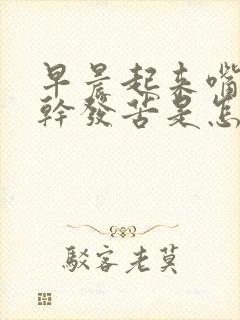 早晨起来嘴
幹發苦是怎
駁客老莫